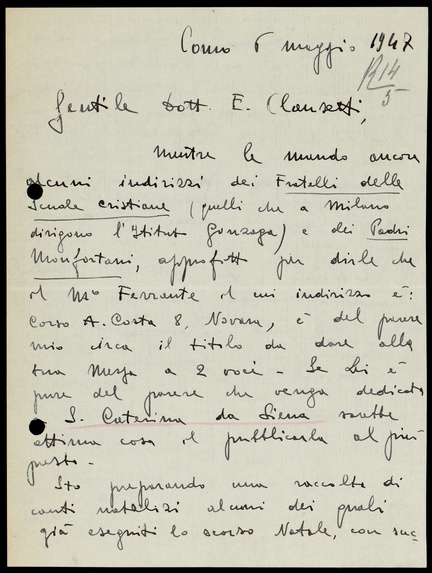 Como 6 maggio 1947
R 14
5
Gentile Dott. E. Clausetti,
mentre le mando ancora
alcuni indirizzi dei Fratelli delle
Scuole cristiane (quelli che a Milano
dirigono l'Istitut Gonzaga) e dei Padri
Monfortani, approfitt per dirle che
il Mso Ferrante il cui indirizzo è:
Corso A. Costa 8, Novara, è del parere
mio circa il titolo da dare alla
sua Messa a 2 voci - Se Lei è
pure del parere che venga dedicata
a S. Caterina da Siena sarebbe
ottima cosa il pubblicarla al più
presto -
Sto preparando una raccolta di
canti natalizi alcuni dei quali
già eseguiti lo scorso Natale, con suc-